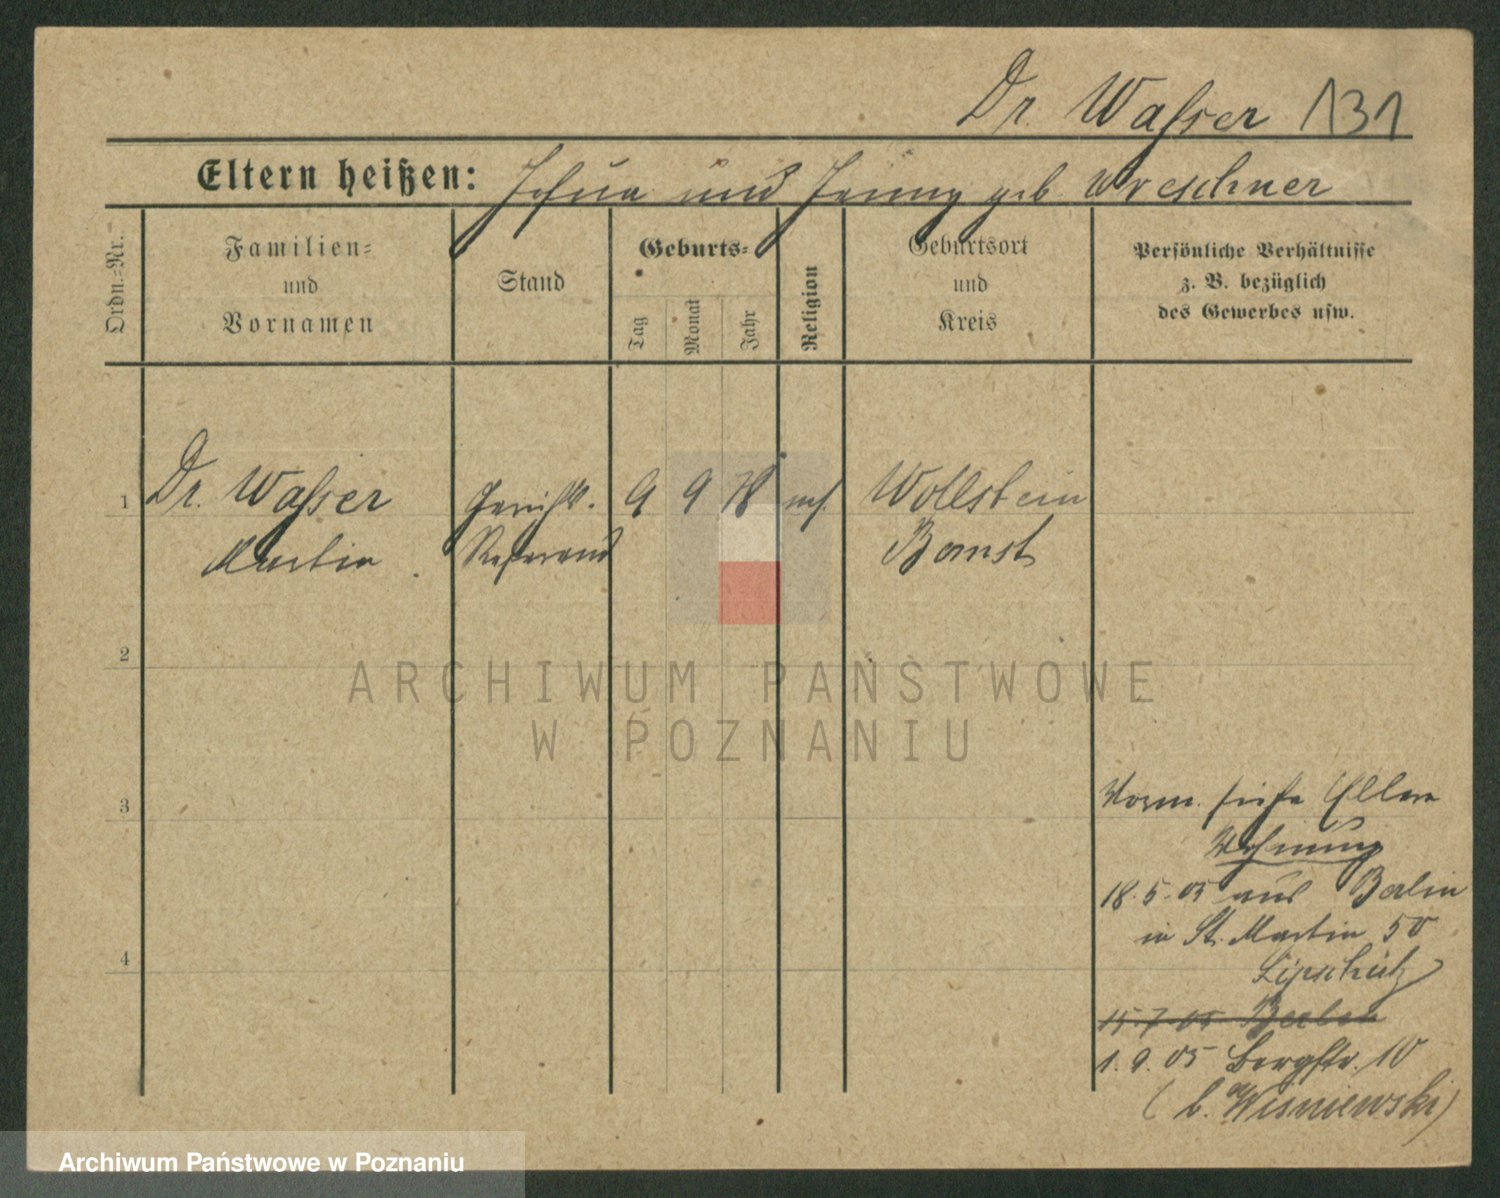 Dr. Wasser 131
Eltern heißen: und geb Wreschner
Ordn.=Nr.
Familien=
und
Vornamen
Stand
Geburts=
Tag
Monat
Jahr
Religion
Geburtsort
und
Kreis
Persönliche Verhältnisse
z. B. bezüglich
des Gewerbes usw.
1 Dr. Wasser Gerichts. 9 9 mos. Wollstein
Martin Referend Bomst
2
ARCHIWUM PAŃSTWOWE
W POZNANIU
3
Vorm. siehe Eltern
Wohnung
18.5.05 aus Berlin
in St. Martin 50
4
Lipschütz
15.7.05 Berlin
1.9.05 Bergstr. 10
(b. Wisniewski)
Archiwum Państwowe w Poznaniu